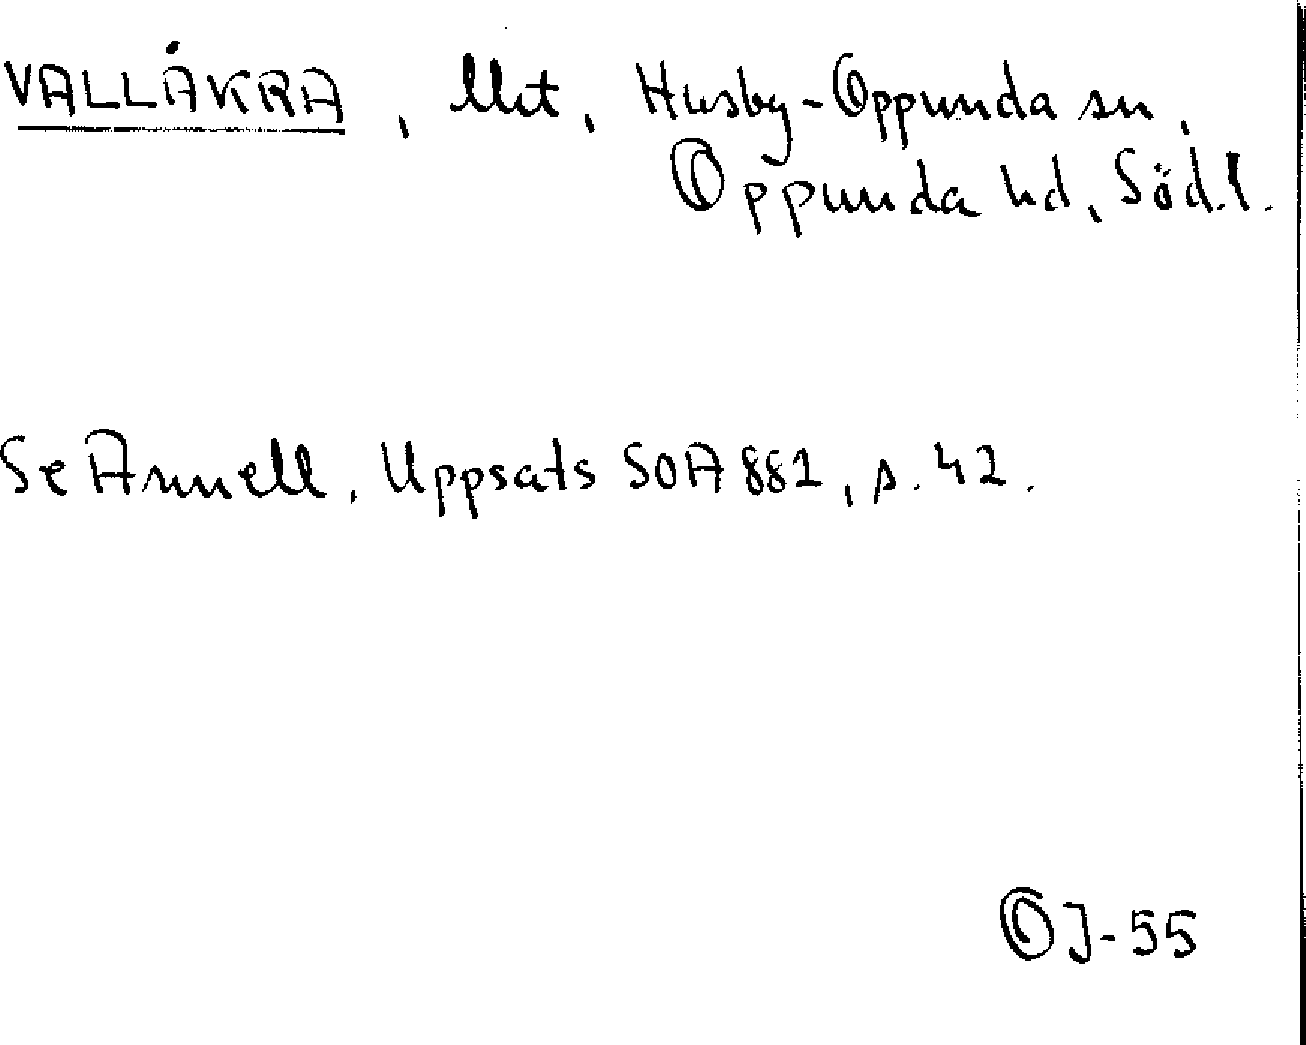 VALLÅKRA, Mt, Husby-Oppunda sn,
Oppunda hd, Södl.
Se Annell, Uppsats SOA 881, s. 42.
OJ-55